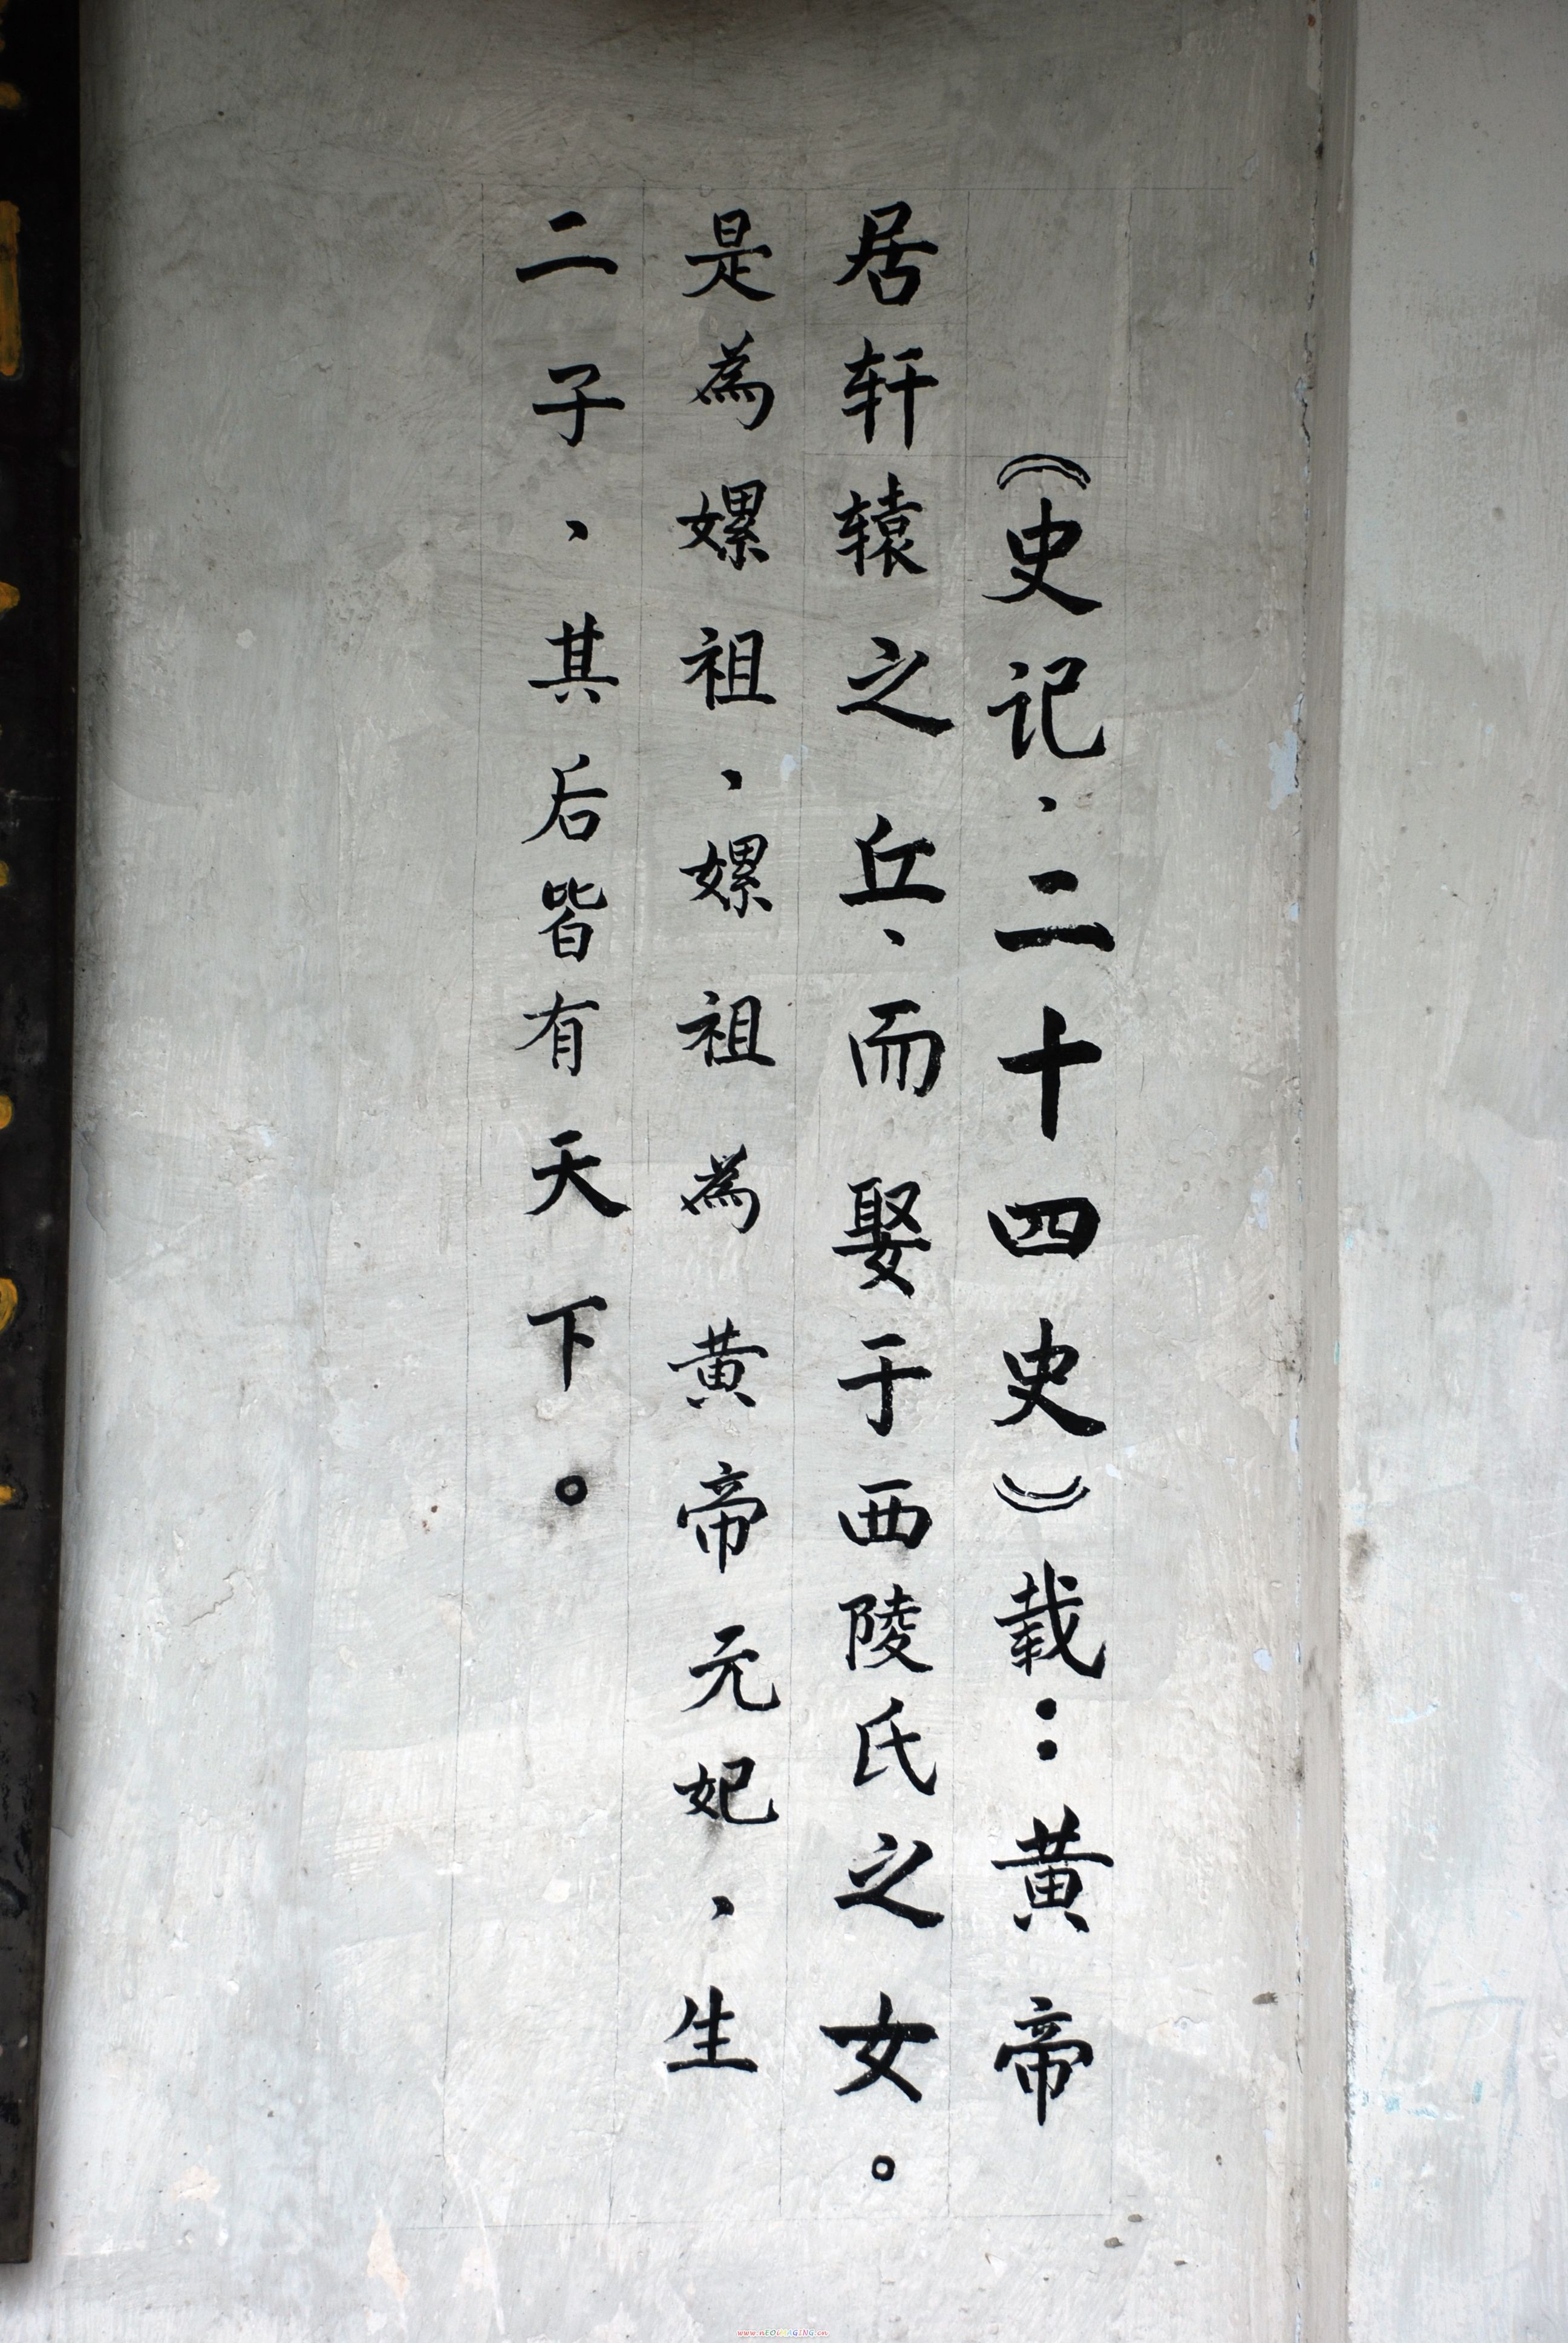 《史记·二十四史》载：黄帝
居轩辕之丘、而娶于西陵氏之女。
是為嫘祖、嫘祖為黄帝元妃、生
二子、其后皆有天下。
www.nEOiMAGING.cn